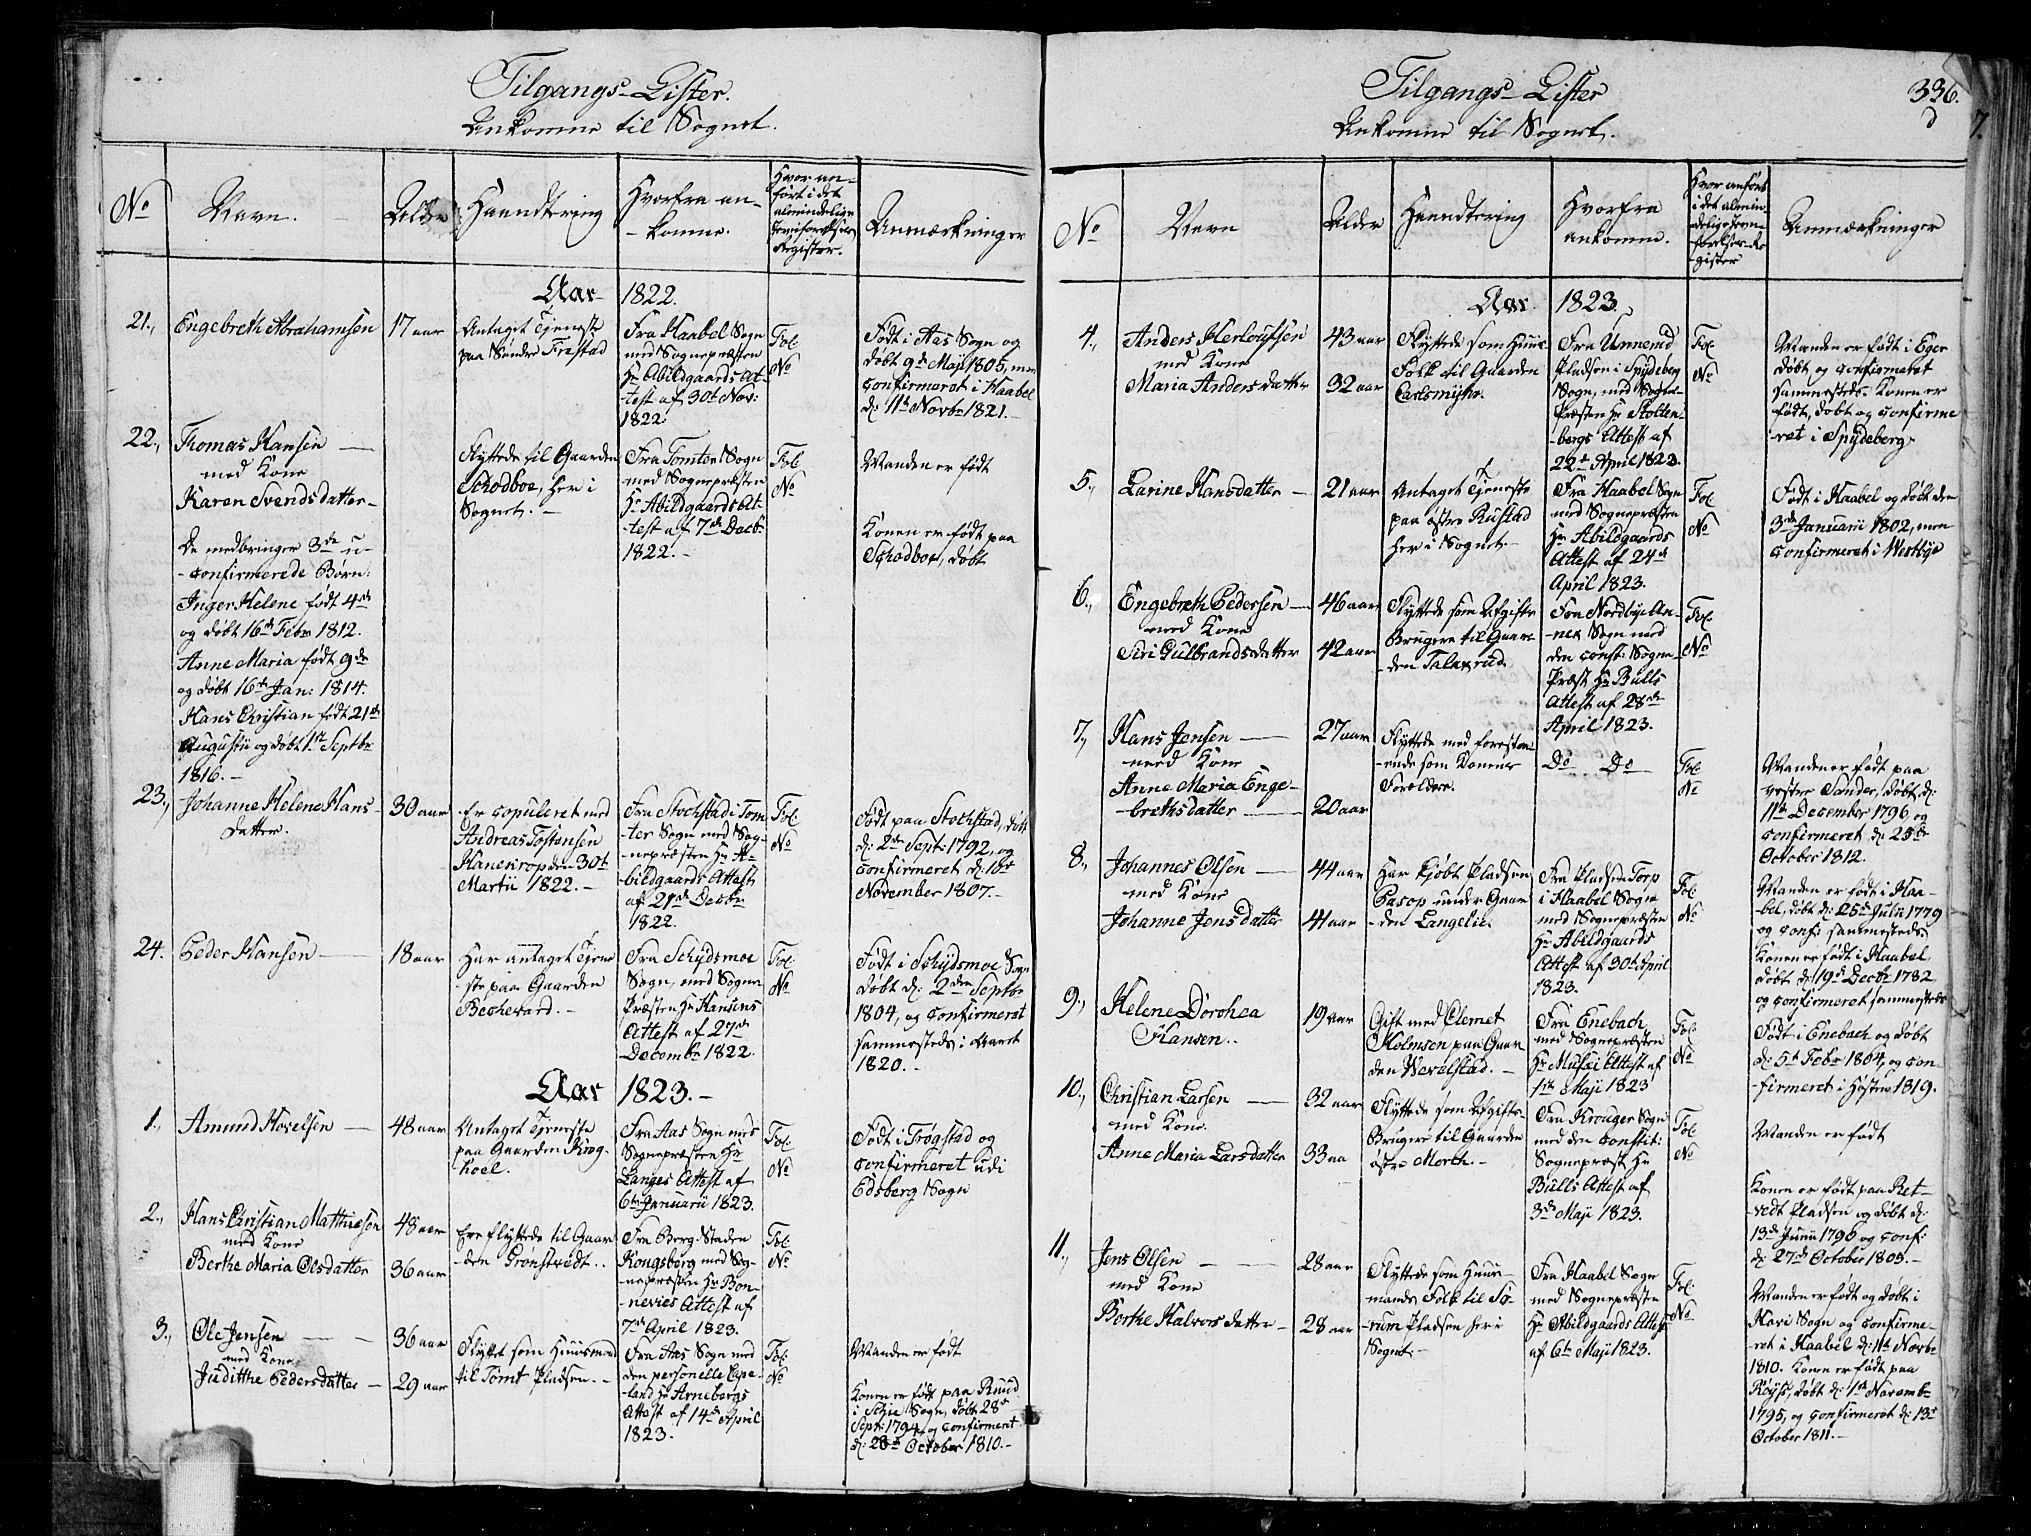 Tilgangs-Lister.
Ankomne til Sognet.
No
Navn.
Alder
Haandtering
Hvorfra an-
-komne.
Hvor an-
ført i det
almindelige
Jevnførelses
Register.
Anmærkninger
Aar 1822.
21., Engebreth Abrahamsen
17 aar
Antaget Tjeneste
paa Søndre Frestad
Fra Haabel Sogn
med Sognepræsten
Hr Abildgaards At-
test af 30te Nov:
1822
Fol.
No
Født i Aas Sogn og
døbt 9de Maji 1805, men
confirmeret i Haabel
d: 11te Novbr 1821.-
22., Thomas Hansen
med Kone
Karen Svendsdatter-
De medbringer 3de u-
-confirmerede Børn:
Inger Helene født 4de
og døbt 16de Febr 1812.
Anne Maria født 9de
og døbt 16te Jan: 1814.
Hans Christian født 21de
Augustii og døbt 1ste Septbr
1816.-
Flyttede til Gaarden
Schodboe, her i
Sognet.-
Fra Tomter Sogn
med Sognepræsten
Hr Abildgaards At-
-test af 7de Decbr
1822.-
Fol.
No
Manden er født
Konen er født paa
Schodboe, døbt
23., Johanne Helene Hans-
datter.
30 aar
Er copuleret med
Andreas Tostensen
Hanekrop den 30te
Martii 1822.-
Fra Stochstad i Tom-
-ter Sogn med Sog-
-nepræsten Hr A-
bildgaards Attest
af 21de Decbr
1822.
Fol.
No
Født paa Stochstad, døbt
d: 2den Sept: 1792, og
confirmeret d: 18de
November 1807.-
24. Peder Hansen
18 aar
Har antaget Tjene-
-ste paa Gaarden
Bechevard.-
Fra Schydsmoe
Sogn, med Sogne-
Præsten Hr Hansens
Attest af 27de
Decembr 1822.
Fol.
No
Født i Schydsmoe Sogn
døbt d: 2den Septbr
1804, og confirmeret
sammesteds i Aaret
1820.-
Aar 1823.-
1., Amund Hovelsen
48 aar
Antaget Tjeneste
paa Gaarden Krog-
hoel.
Fra Aas Sogn med
Sognepræsten Hr
Langes Attest af
6te Januarii 1823.
Fol.
No
Født i Trøgstad og
confirmeret udi
Edsberg Sogn
2., Hans Christian Mathiesen
med Kone
Berthe Maria Olsdatter
48 aar
36 aar
Ere flyttede til Gaar-
-den Grønstvedt..
Fra Berg-Staden
Kongsberg med Sog-
nepræsten Hr Bon-
-nevies Attest af
7de April 1823.
Fol.
No
3., Ole Jensen
med Kone
Judithe Pedersdatter-
36 aar
29 aar
Flyttet som Huusmand
til Tomt Pladsen.-
Fra Aas Sogn med
den personelle Cape-
land Hr Arnebergs
Attest af 14de April
1823.
Fol.
No
Manden er født
Konen er født paa Ruud
i Schie Sogn, døbt 28de
Sept: 1794, og confirmeret
d: 28de October 1810.-
Tilgangs-Lister
Ankomne til Sognet.
336.
d
7.
No
Navn
Alder
Haandtering
Hvorfra
ankomne.
Hvor anført
i det almin-
delige Jevn-
førelses-Re-
gister
Anmærkninger
Aar 1823.
4., Anders Herloufsen
med Kone
Maria Andersdatter
43 aar
32 aar
Flyttede som Huus-
Folk til Gaarden
Carlsmyhr.
Fra Unnerud
Pladsen i Spydeberg
Sogn, med Sogne-
Præsten Hr Stolten-
-bergs Attest af
22de April 1823.
Fol.
No
Manden er født i Eger
døbt og confirmeret
sammesteds. Konen er
født, døbt og confirme-
-ret i Spydeberg.
5., Larine Hansdatter
21 aar
Antaget Tjeneste
paa østre Rustad
her i Sognet.-
Fra Haabel Sogn
med Sognepræsten
Hr Abildgaards
Attest af 24de
April 1823.
Fol.
No
Født i Haabel og døbt den
3de Januarii 1802, men
confirmeret i Westbye
6., Engebreth Pedersen
med Kone
Siri Gulbrandsdatter
46 aar
42 aar
Flyttede som Afgifts-
Brugere til Gaar-
-den Talaxrud.
Fra Nordbye An-
-nex Sogn med
den const: Sogne-
Præst Hr Bulls
Attest af 28de
April 1823.
Fol.
No
7., Hans Jensen
med Kone
Anne Maria Enge-
-brethsdatter
27 aar
20 aar
Flyttede med forestaa-
-ende som Konens
Forældre.
Do Do
Fol.
No
Manden er født paa
vestre Sander, døbt d:
11te December 1796 og
confirmeret d: 25de
October 1812.
8., Johannes Olsen
med Kone
Johanne Jensdatter
44 aar
41 aar
Har kjøbt Pladsen
Pasop under Gaar-
-den Langelie.
Fra Pladsen Torp
i Haabel Sogn
med Sognepræsten
Hr Abildgaards
Attest af 30te April
1823.
Fol.
No
Manden er født i Haa-
bel, døbt d: 25de Julii 1779
og conf: sammesteds.
Konen er født i Haabel,
døbt d: 19de Decbr 1782
og confirmeret sammesteds
9., Helene Dorohea
Hansen..
19 aar
Gift med Clemet
Holmsen paa Gaar-
den Wevelstad.-
Fra Enebach
med Sognepræsten
Hr Musæi Attest af
1ste Maji 1823
Fol.
No
Født i Enebach og døbt
d: 5te Febr 1804, og con-
-firmeret i Høsten 1819.
10., Christian Larsen
med Kone.
Anne Maria Larsdatter
32 aar
33 aa
Flyttede som Afgifts-
Brugere til Gaarden
østre Morth.-
Fra Krouger Sogn
med den constit:
Sognepræst Hr
Bulls Attest af
3de Maji 1823.
Fol.
No
Manden er født
Konen er født paa Ret-
-vedt Pladsen og døbt d:
13de Junii 1790 og conf:
d: 27de October 1805.-
11., Jens Olsen
med Kone
Berthe Halvorsdatter-
28 aar
28 aar
Flyttede som Huus-
mands Folk til Sø-
-rum Pladsen her i
Sognet.-
Fra Haabel Sogn
med Sognepræsten
Hr Abildgaards Attest
af 6te Maji 1823.
Fol.
No
Manden er født og døbt i
Havi Sogn og confirme-
-ret i Haabel d: 11te Novbr
1810. Konen er født paa
Røyse, døbt d: 1ste Novemb-
1795, og confirmeret d: 13de
October 1811.-